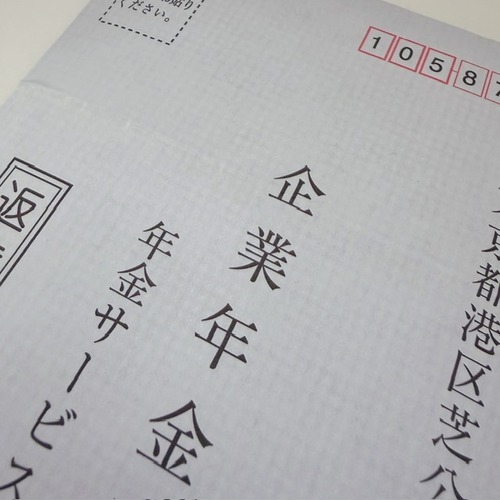 ください。
10587
京都港区芝公
企業年金
年金サービス
返